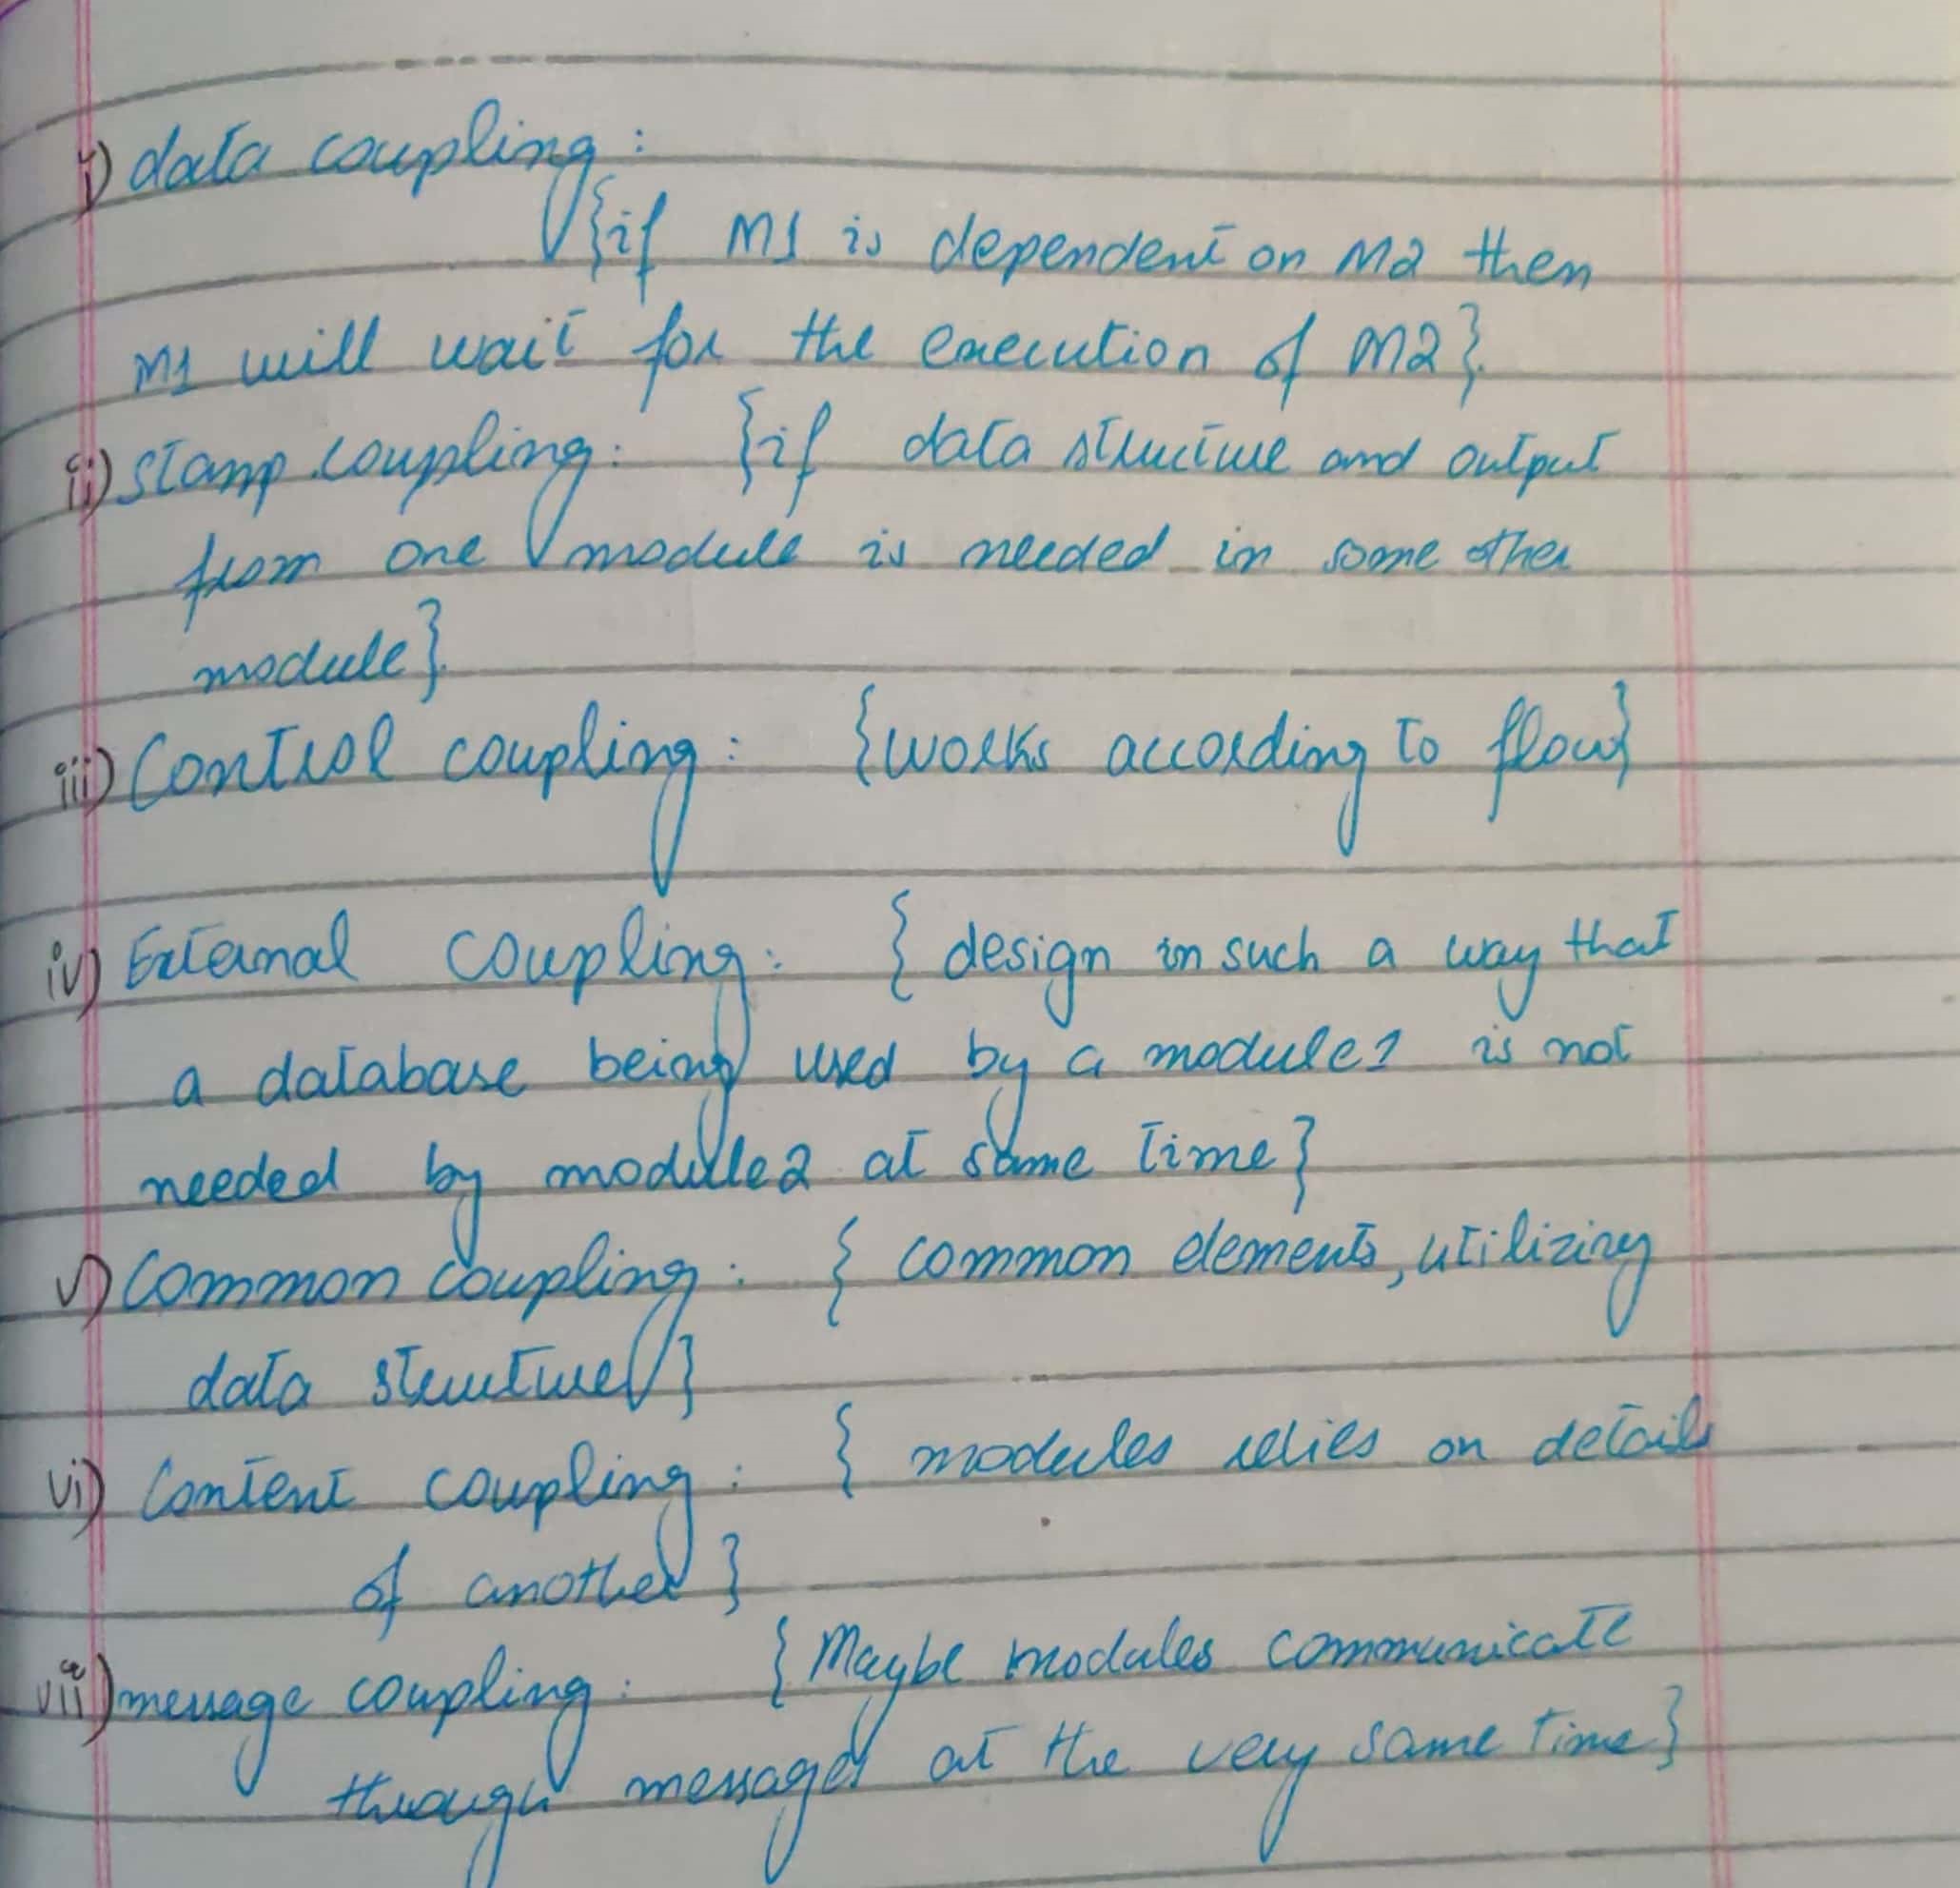 i) data coupling :
{if M1 is dependent on M2 then
M1 will wait for the execution of M2}.
ii) stamp coupling : {if data structure and output
from one module is needed in some other
module}.
iii) Control coupling : {works according to flow}
iv) External coupling : { design in such a way that
a database being used by a module1 is not
needed by module2 at same time}
v) Common coupling : { common elements, utilizing
data structure}
vi) Content coupling : { modules relies on details
of another }
vii) message coupling : { Maybe modules communicate
through messages at the very same time}